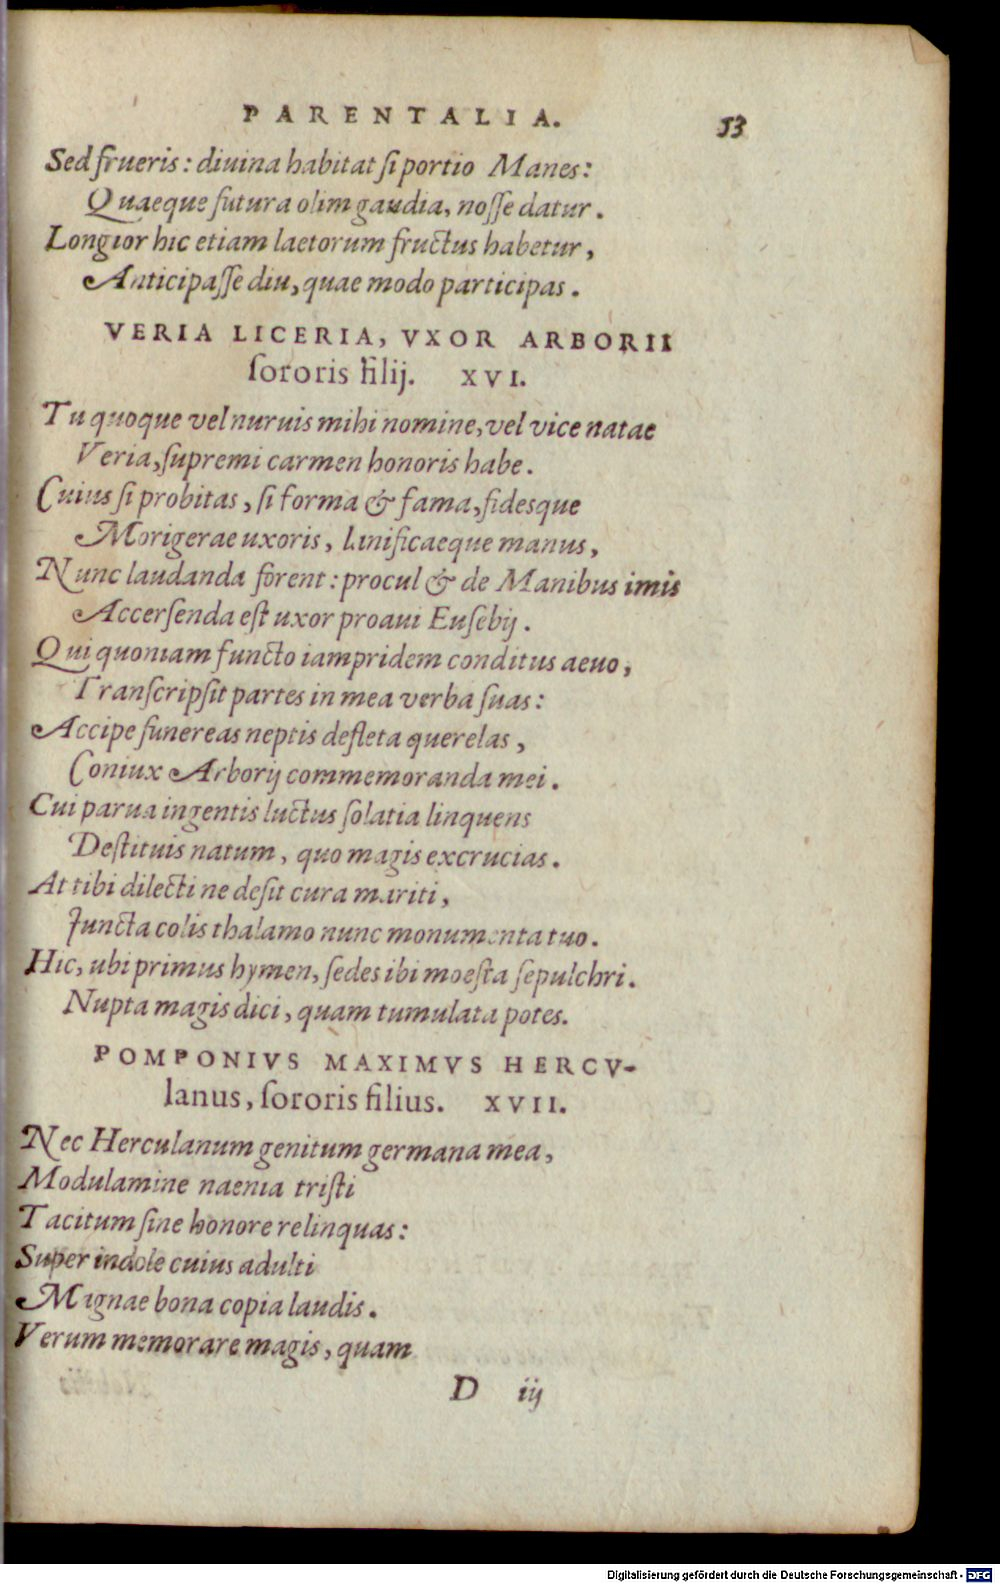 PARENTALIA. 53
Sed frueris: diuina habitat si portio Manes:
Quaeque futura olim gaudia, nosse datur.
Longior hic etiam laetorum fructus habetur,
Anticipasse diu, quae modo participas.
VERIA LICERIA, VXOR ARBORII
sororis filij. XVI.
Tu quoque vel nuruis mihi nomine, vel vice natae
Veria, supremi carmen honoris habe.
Cuius si probitas, si forma & fama, fidesque
Morigerae uxoris, linificaeque manus,
Nunc laudanda forent: procul & de Manibus imis
Accersenda est uxor proaui Eusebij.
Qui quoniam functo iampridem conditus aeuo,
Transcripsit partes in mea verba suas:
Accipe funereas neptis defleta querelas,
Coniux Arborij commemoranda mei.
Cui parua ingentis luctus solatia linquens
Destituis natum, quo magis excrucias.
At tibi dilecti ne desit cura mariti,
Juncta colis thalamo nunc monumenta tuo.
Hic, ubi primus hymen, sedes ibi moesta sepulchri.
Nupta magis dici, quam tumulata potes.
POMPONIVS MAXIMVS HERCV-
lanus, sororis filius. XVII.
Nec Herculanum genitum germana mea,
Modulamine naenia tristi
Tacitum sine honore relinquas:
Super indole cuius adulti
Magnae bona copia laudis.
Verum memorare magis, quam
D iij
Digitalisierung gefördert durch die Deutsche Forschungsgemeinschaft - DFG